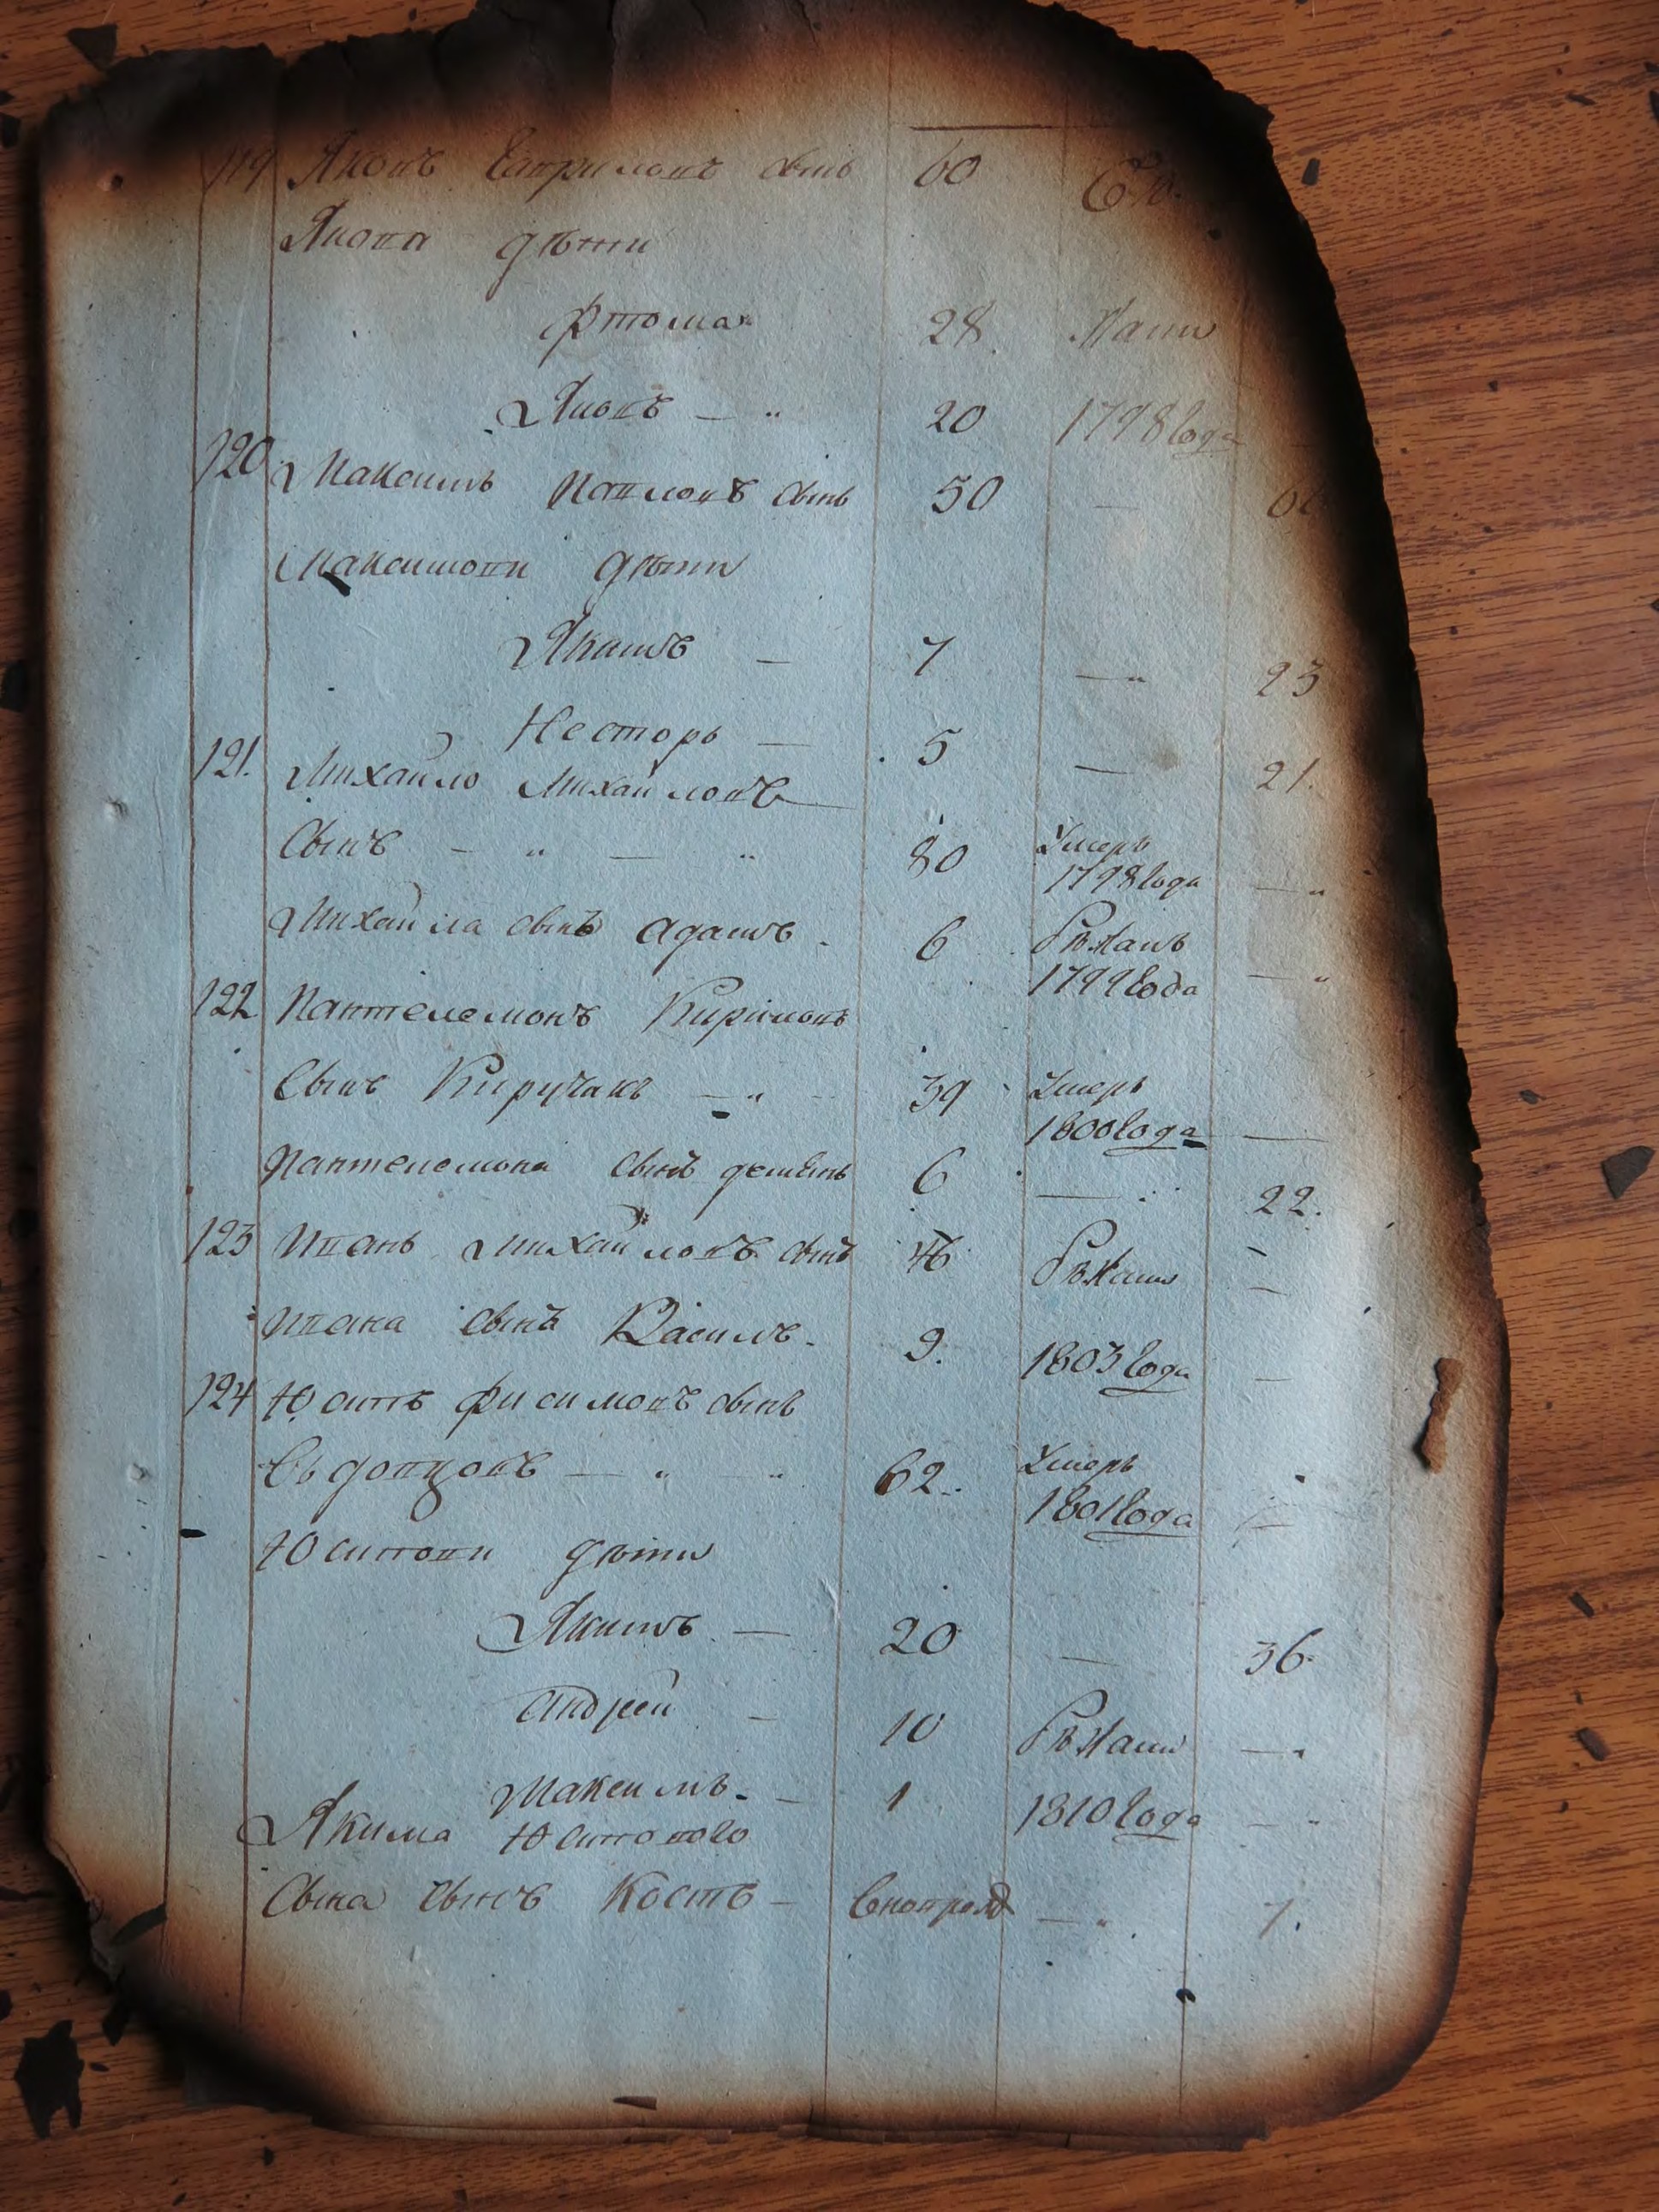 119 Яковъ Гавриловъ сынъ 60
Якова дѣти
Ѳтома 28 Бѣжали
Яковъ — " 20 1798 года
120 Максимъ Павловъ сынъ 50 —
Максимови дѣти
Якимъ — 7 — " 23
Несторъ — 5 — 21.
121. Михайло Михайловъ
Сынъ — " — " 80 Умеръ 1798 года — "
Михайла сынъ Адамъ. 6 Бѣжалъ 1799 года — "
122 Пантелемонъ Кириловъ
Сынъ Киручакъ — " 39 Умеръ 1800 года —
Пантелемона сынъ Демянъ 6 — " 22.
123 Иванъ Михайловъ сынъ 46 Бѣжали —
Ивана сынъ Василь. 9. 1803 года —
124 Юситъ Фисимовъ сынъ
Въдовцовъ — " " 62. Умеръ 1801 года —
Юситови дѣти
Якимъ — 20 — 36.
Андрей — 10 Бѣжали — "
Максимъ. — 1 1810 года — "
Якима Юситового
Сына сынъ Кость — Вновроjд — " 7.